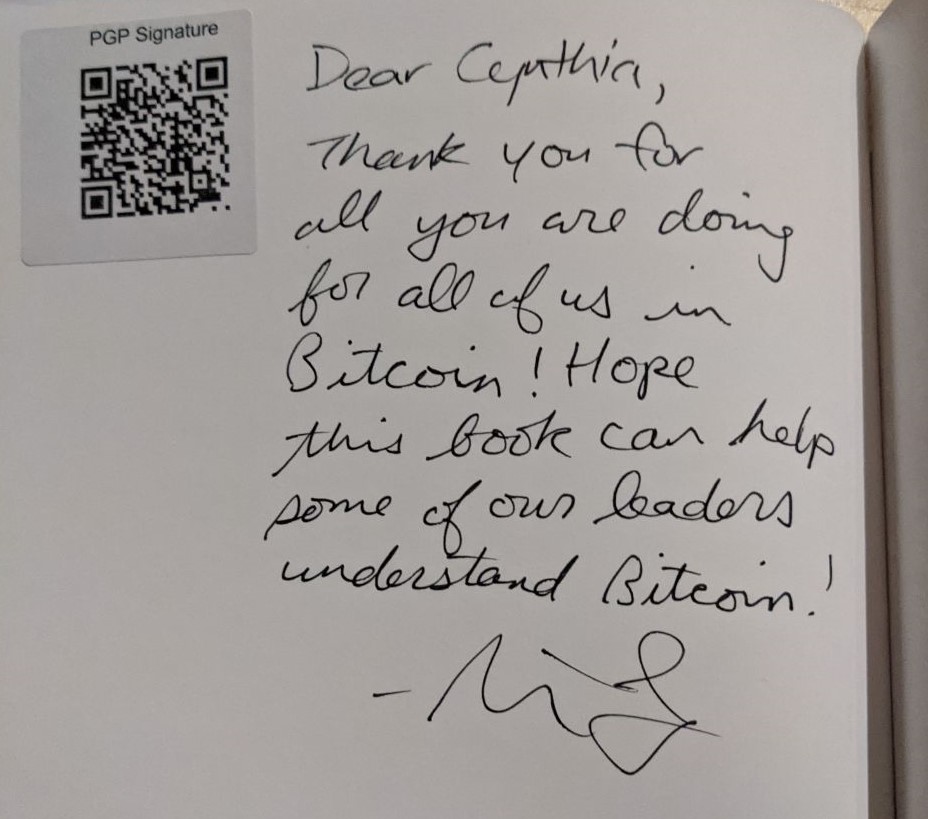 PGP Signature
Dear Cynthia,
Thank you for
all you are doing
for all of us in
Bitcoin! Hope
this book can help
some of our leaders
understand Bitcoin!